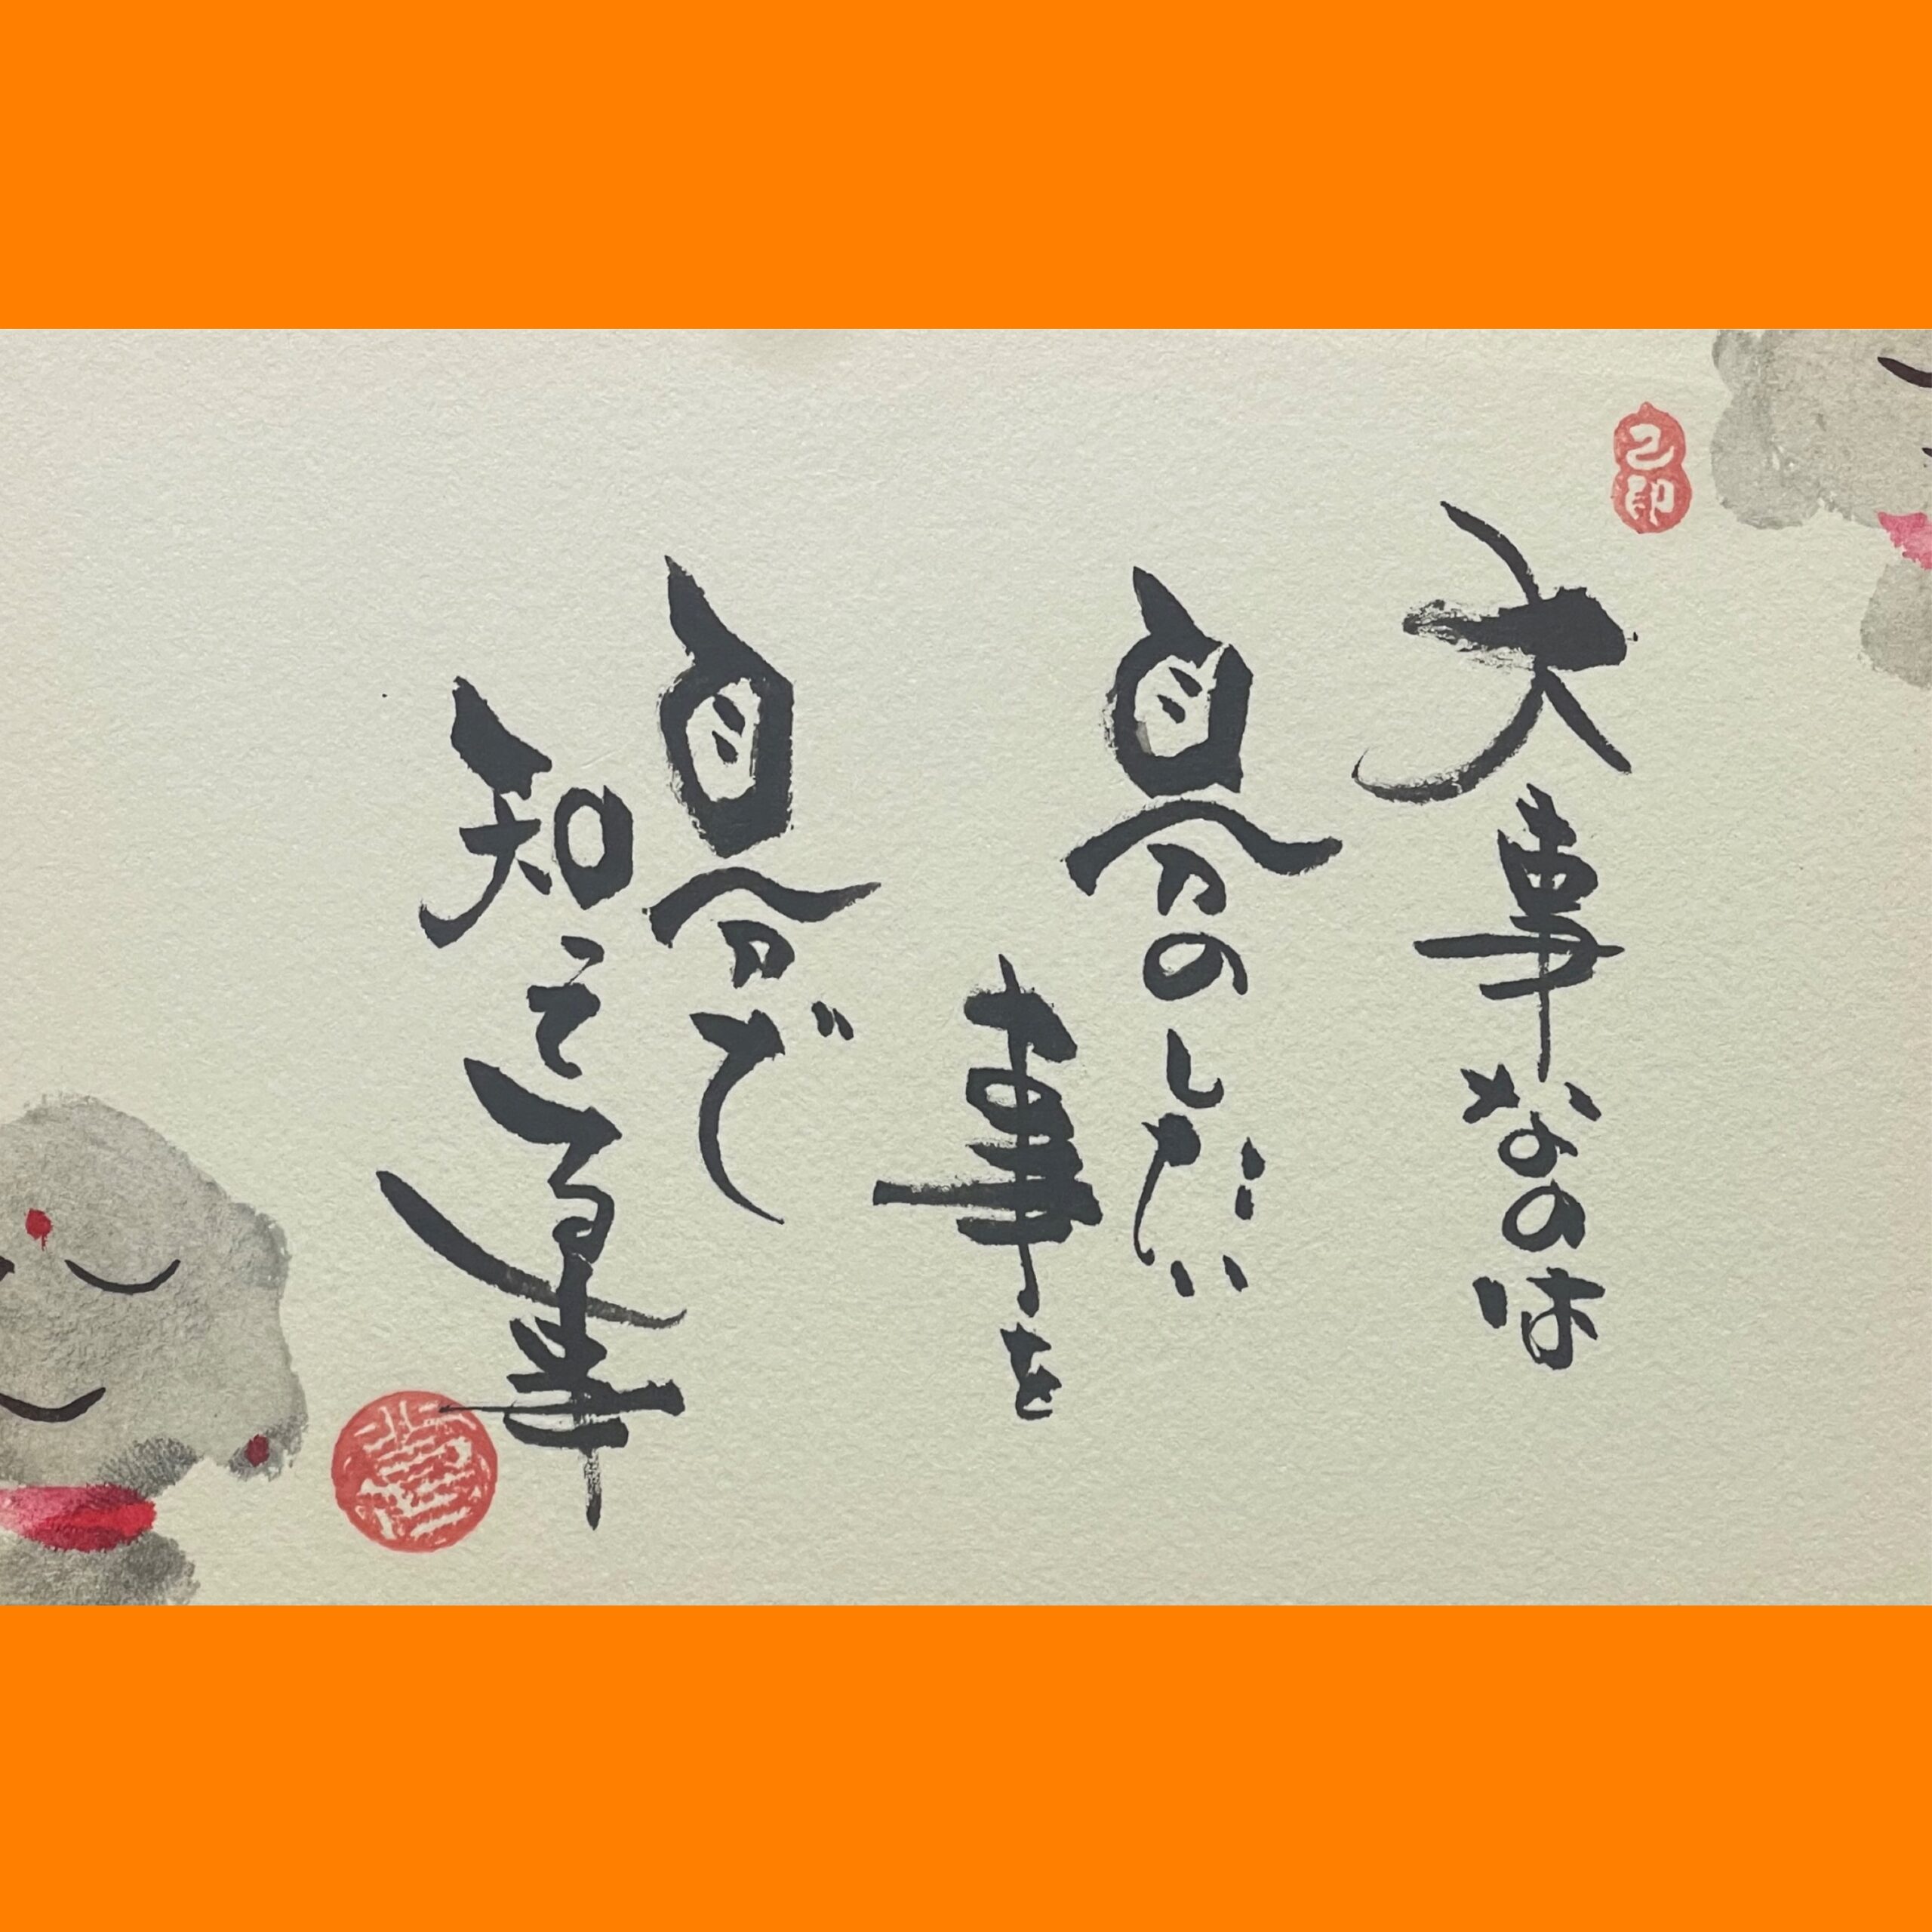 己印
大事なのは
自分のしたい
事を
自分で
知ってる事